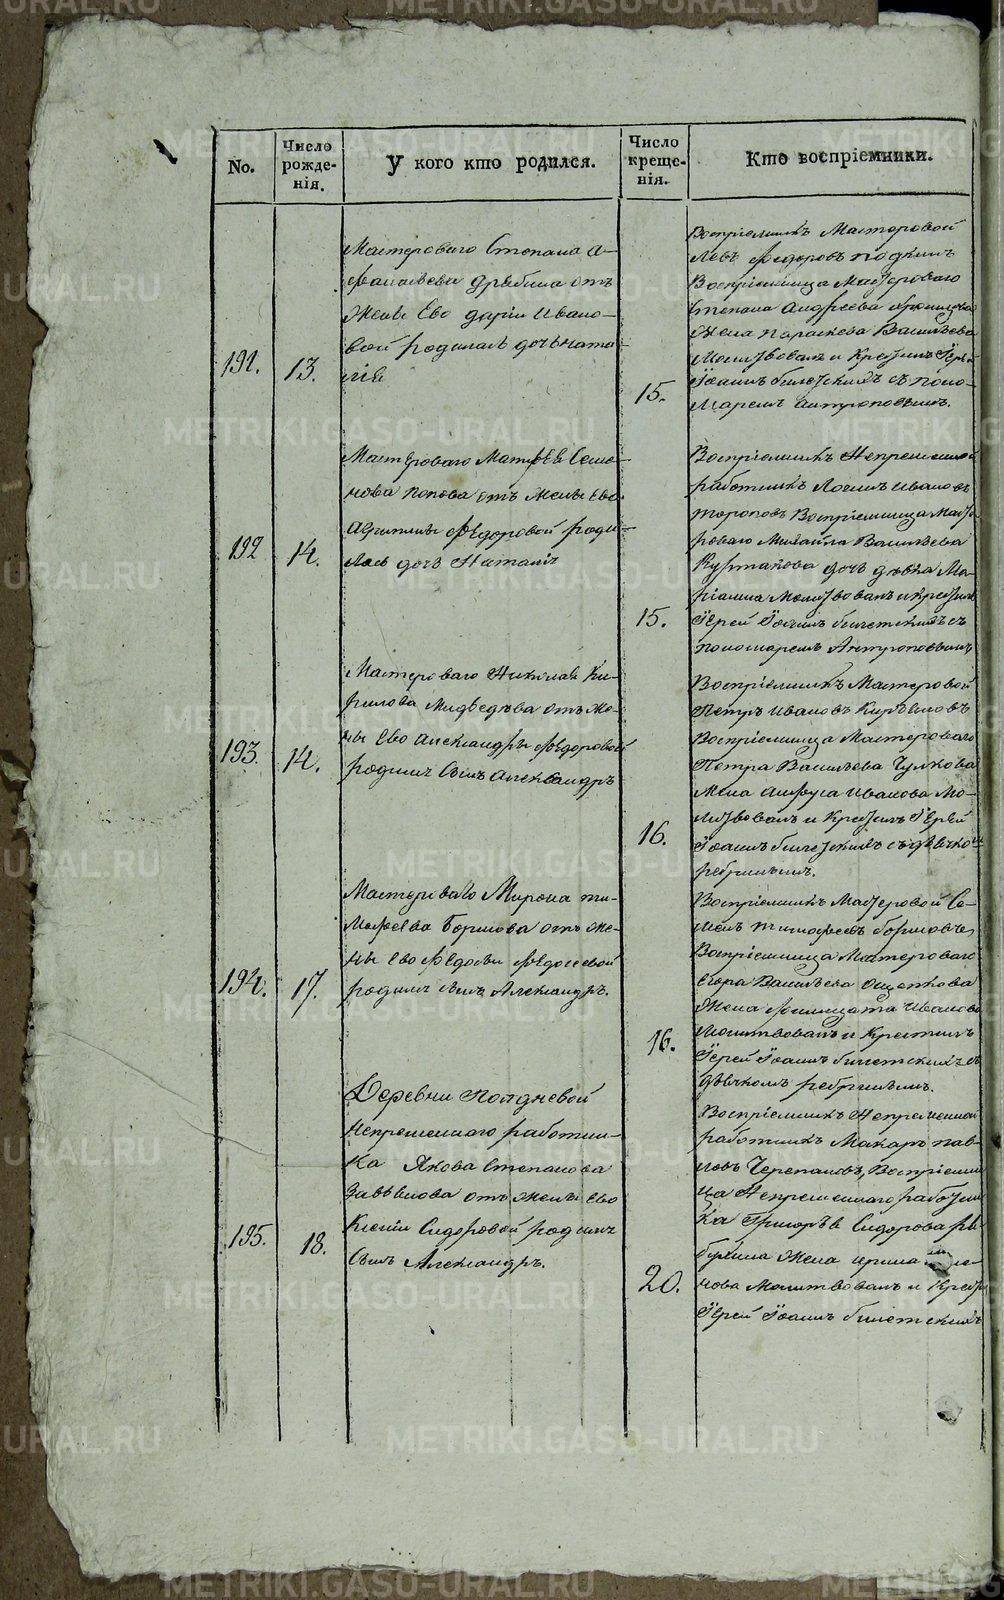 No.
Число рожде-
нія.
У кого кто родился.
Число креще-
нія.
Кто воспріемники.
191.
13.
Мастероваго Степана А-
фанасьева дрябина отъ
Жены Ево даріи Ивано-
вой родилась дочь ната-
лія
15.
Воспріемникъ Мастеровой
Левъ Федоровъ
Воспріемница Мастероваго
Степана Андреева
Жена параскева Васильева
Молитвовалъ и Крестилъ Іерей
Іоаннъ билетскихъ съ поно-
маремъ антроповымъ.
192
14.
Мастероваго Матфея Семе-
нова попова отъ Жены Ево
Федоровой роди-
лась дочь Наталія
15.
Воспріемникъ Непременной
работникъ Логинъ Ивановъ
тороповъ Воспріемница Масте-
роваго Михайла Васильева
дочь девка Ма-
ріанна Молитвовалъ и Крестилъ
Іерей Іоаннъ билетскихъ съ
пономаремъ Антроповымъ
193.
14.
Мастероваго Николая Ки-
рилова Медведева отъ Же-
ны Ево Александры Федоровой
родился Сынъ Александръ
16.
Воспріемникъ Мастеровой
Петръ Ивановъ
Воспріемница Мастероваго
Петра Васильева Чулкова
Жена Ивакова Мо-
литвовалъ и Крестилъ Іерей
Іоаннъ билетскихъ съ дьячко
ребринымъ.
194.
17.
Мастероваго Мирона ти-
мофеева Борисова отъ Же-
ны Ево Федосьи Федосеевой
родился сынъ Александръ.
16.
Воспріемникъ Мастеровой Се-
менъ тимофеевъ борисовъ
Воспріемница Мастероваго
Егора Васильева ощепкова
Жена Иванова
Молитвовалъ и Крестилъ
Іерей Іоаннъ билетскихъ съ
дьячкомъ ребринымъ.
195.
18.
Деревни Полдневой
непременнаго работни-
ка Якова Степанова
Завьялова отъ Жены Ево
Ксеніи Сидоровой родился
Сынъ Александръ.
20.
Воспріемникъ Непременной
работникъ Макаръ пав-
ловъ Черепановъ, Воспріемни
ца Непременнаго работни
ка Григорья Сидорова ря-
бухина Жена ирина
нова Молитвовалъ и Крести
Іерей Іоаннъ билетскихъ
METRIKI.GASO-URAL.RU